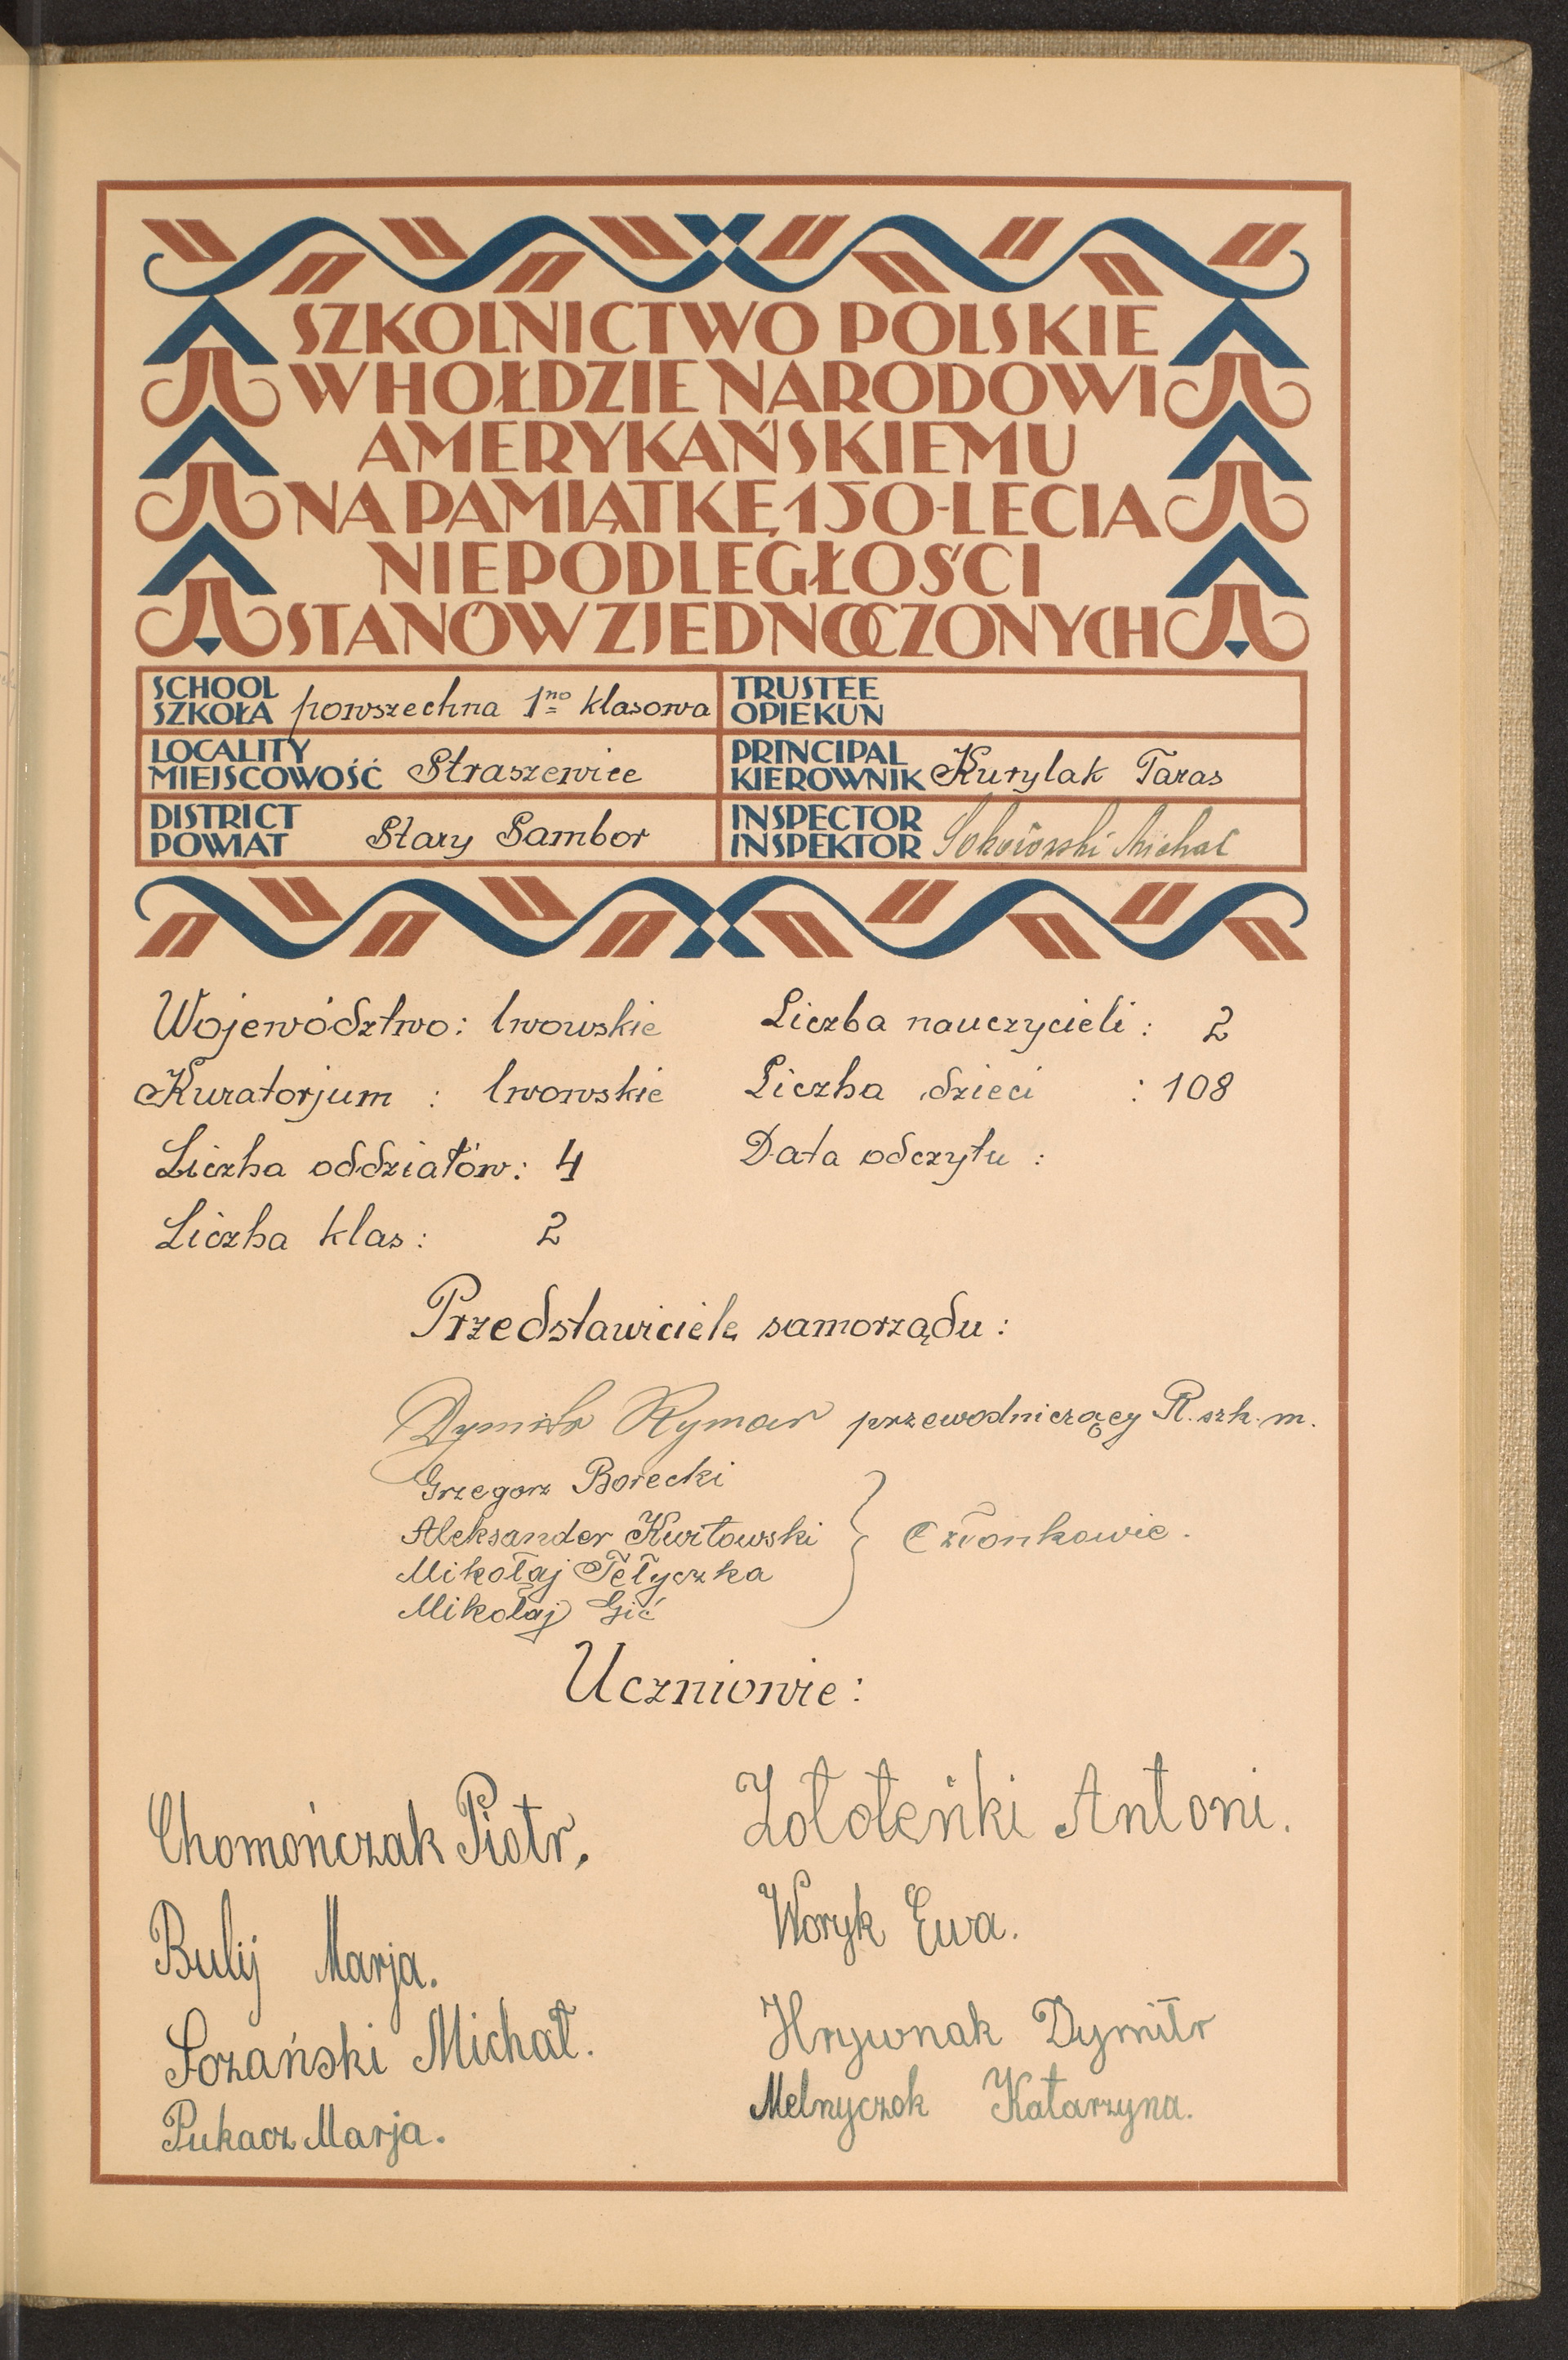 SZKOLNICTWO POLSKIE
W HOŁDZIE NARODOWI
AMERYKAŃSKIEMU
NA PAMIĄTKĘ 150-LECIA
NIEPODLEGŁOŚCI
STANÓW ZJEDNOCZONYCH
SCHOOL
SZKOŁA powszechna 1no klasowa
TRUSTEE
OPIEKUN
LOCALITY
MIEJSCOWOŚĆ Straszewice
PRINCIPAL
KIEROWNIK Kurylak Taras
DISTRICT
POWIAT Stary Sambor
INSPECTOR
INSPEKTOR Sokołowski Michał
Województwo: lwowskie
Liczba nauczycieli: 2
Kuratorjum : lwowskie
Liczba dzieci : 108
Liczba oddziałów: 4
Data odczytu :
Liczba klas: 2
Przedstawiciele samorządu:
Dymitr Rymar przewodniczący R. szk. m.
Grzegorz Borecki
Aleksander Kwitowski
Mikołaj Tełyczka
Mikołaj Gić
Członkowie.
Uczniowie:
Chomończak Piotr.
Zołoteńki Antoni.
Bulij Marja.
Woryk Ewa.
Sozański Michał.
Hrywnak Dymitr
Pukacz Marja.
Melnyczok Katarzyna.